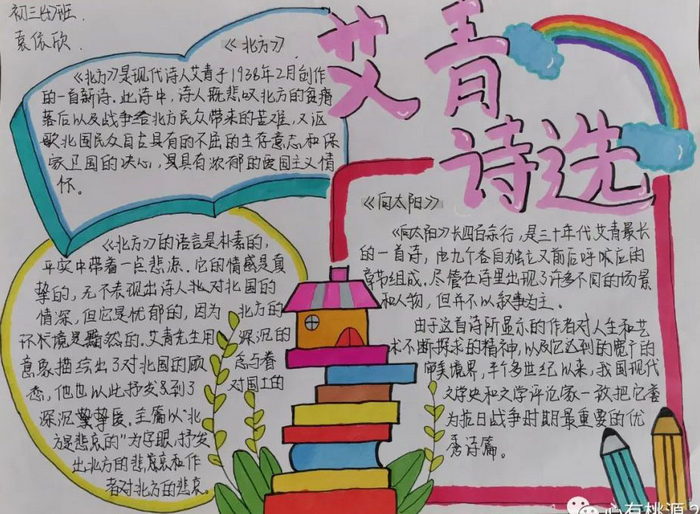 初三(4)班
袁依欣
艾青
诗选
《北方》
《北方》是现代诗人艾青于1938年2月创作
的一首新诗。此诗中，诗人既悲叹北方的贫瘠
落后以及战争给北方民众带来的苦难，又讴
歌北国民众自古具有的不屈的生存意志和保
家卫国的决心，具有浓郁的爱国主义情
怀。
《北方》的语言是朴素的，
平实中带着一点悲凉。它的情感是真
挚的，无不表现出诗人北对北国的
情深，但它是忧郁的，因为北方的
环境是黯然的，艾青先生用深沉的
意象描绘出了对北国的顾虑与眷
恋，他也以此抒发了对国土的
深沉挚爱。主篇以“北
方是悲哀的”为字眼，抒发
出北方的悲哀和作
者对北方的悲哀。
《向太阳》
《向太阳》长四百余行，是三十年代艾青最长
的一首诗，由九个各自独立又前后呼应的
章节组成。尽管在诗里出现了许多不同的场景
和人物，但并不以叙事为主。
由于这首诗所显示的作者对人生和艺
术不断探求的精神，以及它达到的宽广的
审美境界，半个多世纪以来，我国现代
文学史和文学评论家一致把它誉
为抗日战争时期最重要的优
秀诗篇。
心有桃源